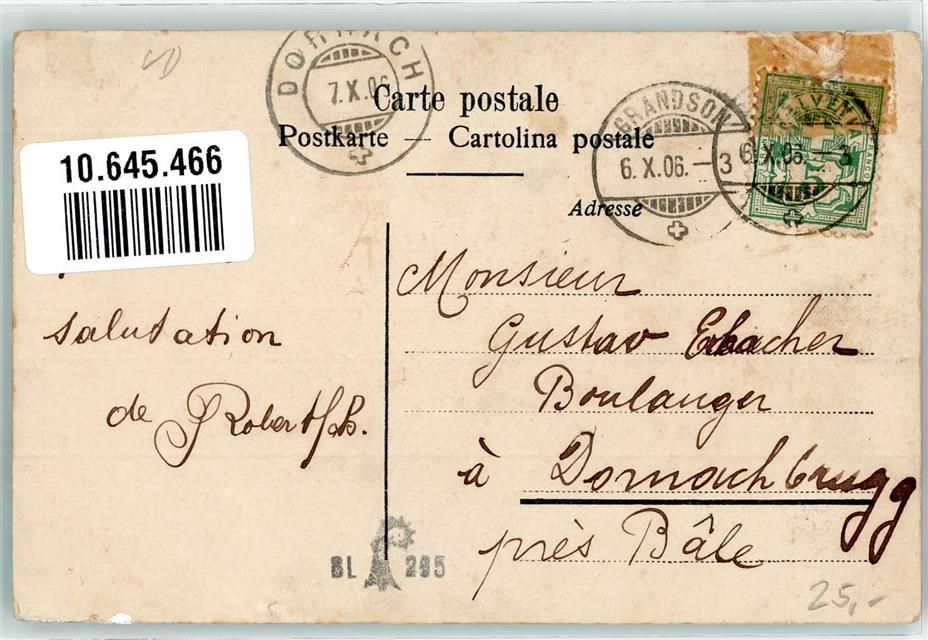 DORNACH
7.X.06
Carte postale
Postkarte — Cartolina postale
GRANDSON
6.X.06.–3
6.X.06.–3
Adresse
10.645.466
Monsieur
Gustav Erbacher
Boulanger
à Dornachbrugg
près Bâle
salutation
de Robert
BL 295
25,-